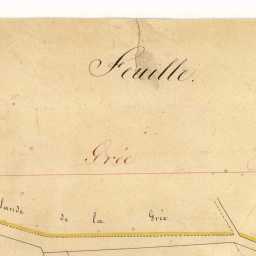 Feuille.
Grée
Lande de la Grée